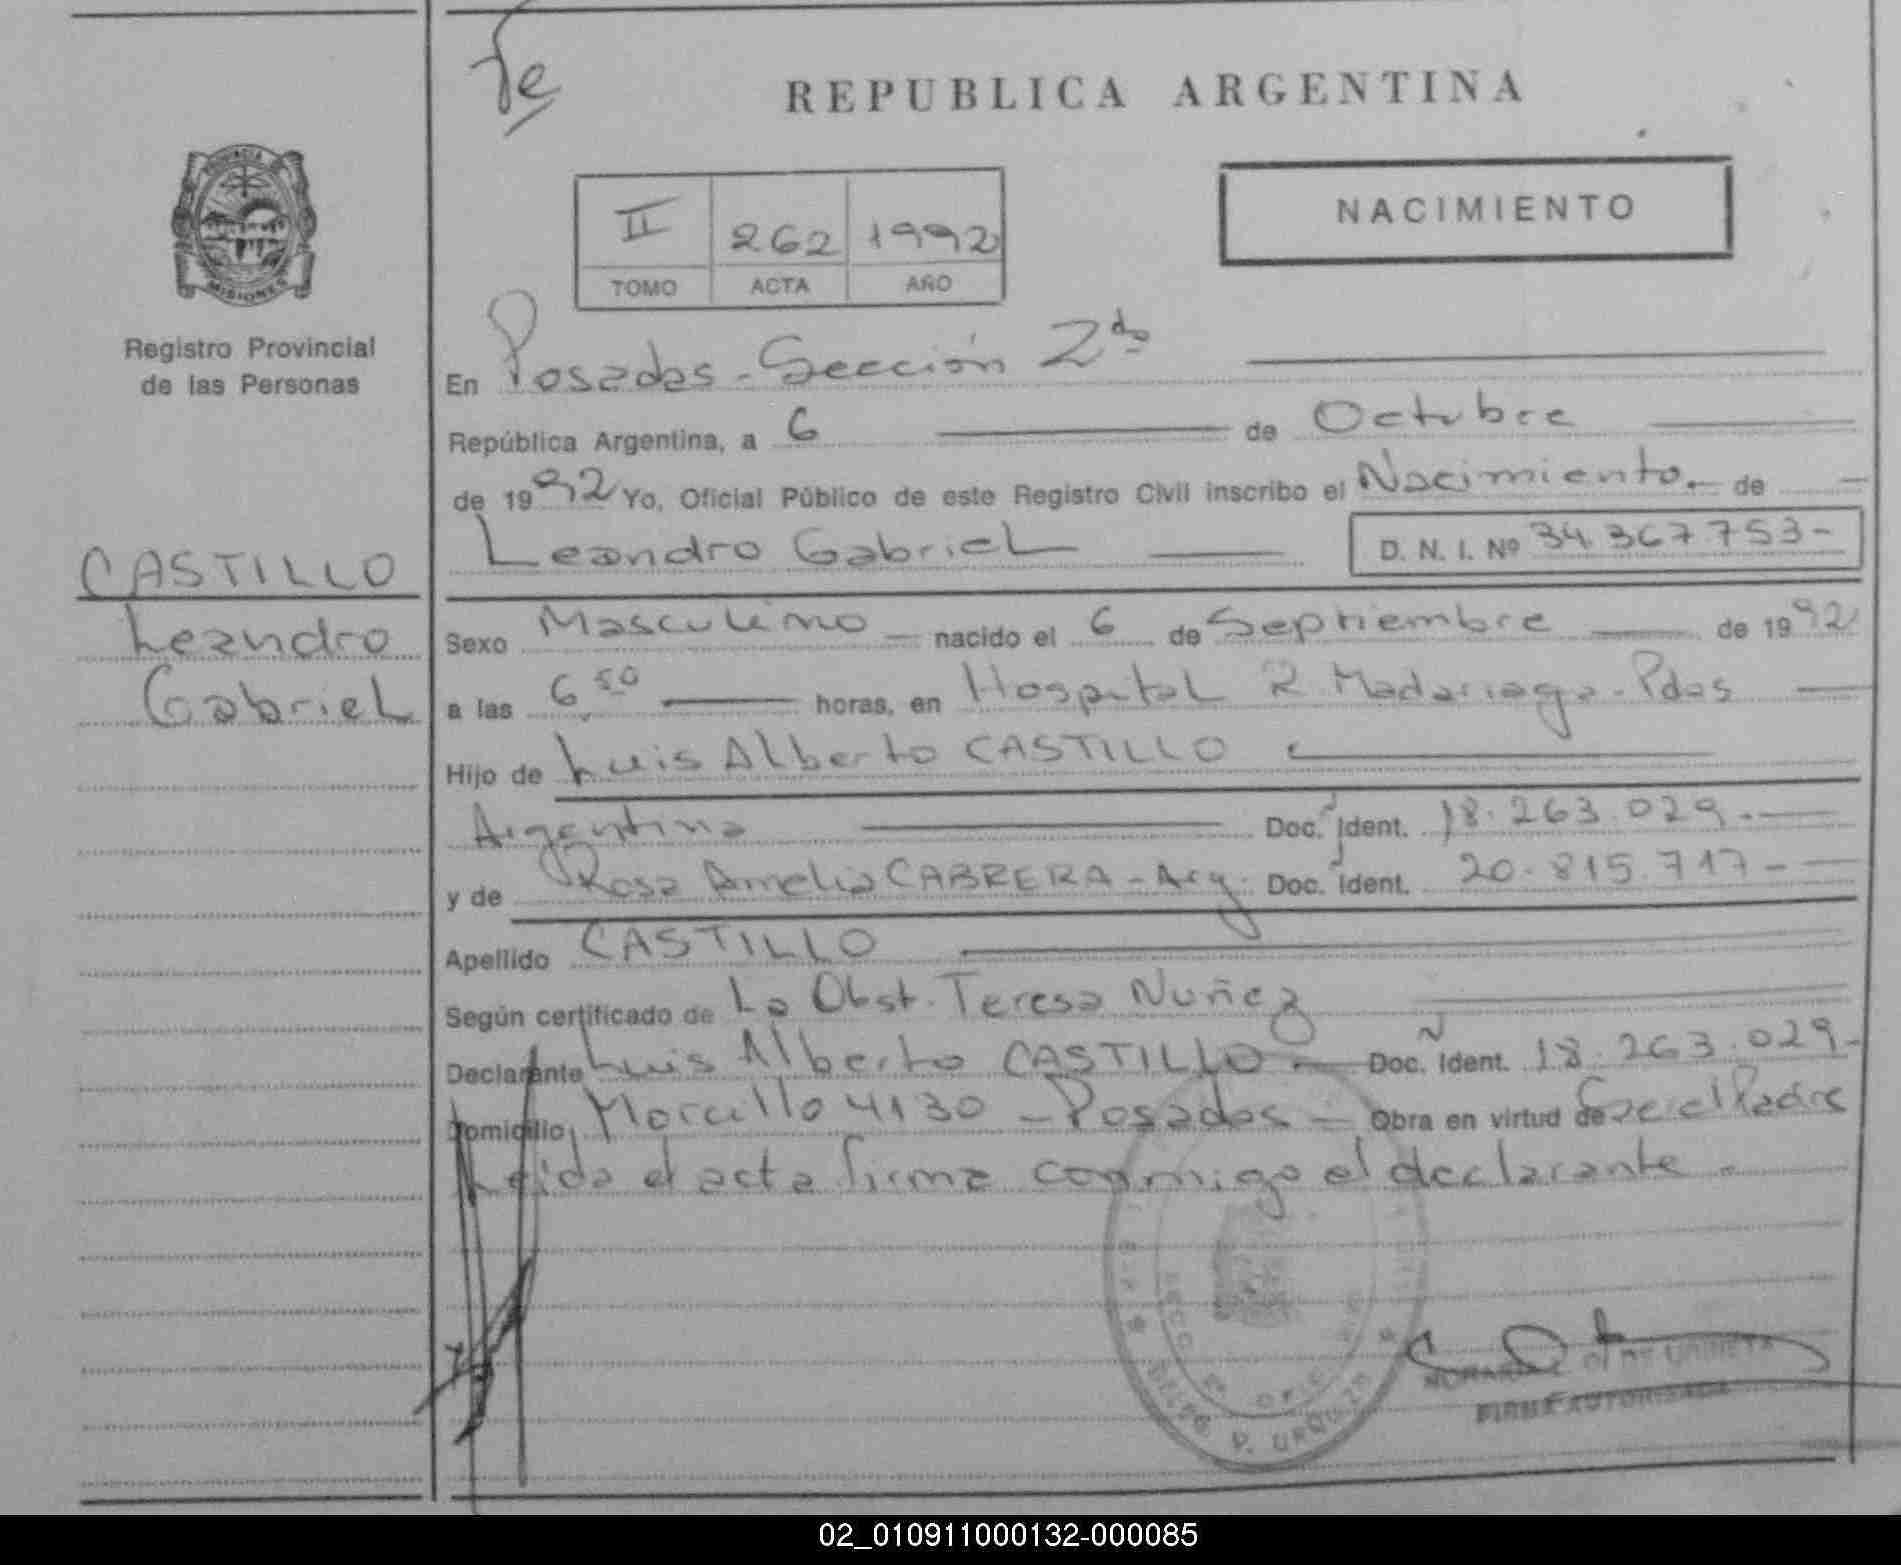 Te
REPUBLICA ARGENTINA
PROVINCIA
MISIONES
Registro Provincial
de las Personas
II 262 1992
TOMO ACTA AÑO
NACIMIENTO
En Posadas - Sección 2da
República Argentina, a 6 de Octubre
de 1992 Yo, Oficial Público de este Registro Civil inscribo el Nacimiento.- de
Leandro Gabriel D. N. I. Nº 34.367.753-
CASTILLO
Leandro
Gabriel
Sexo Masculino nacido el 6 de Septiembre de 1992
a las 6,50 horas, en Hospital R. Madariaga - Pdas
Hijo de Luis Alberto CASTILLO
Argentina Doc. Ident. 18.263.029.-
y de Rosa Amelia CABRERA - Arg. Doc. Ident. 20.815.717-
Apellido CASTILLO
Según certificado de La Obst. Teresa Nuñez
Declarante Luis Alberto CASTILLO.- Doc. Ident. 18.263.029-
Domicilio Morcillo 4130 - Posadas - Obra en virtud de Ser el Padre
Leida el acta firma conmigo el declarante.
SECC 2ª
P. URQUIZA
DE URRETA
FIRMA AUTORIZADA
02_010911000132-000085